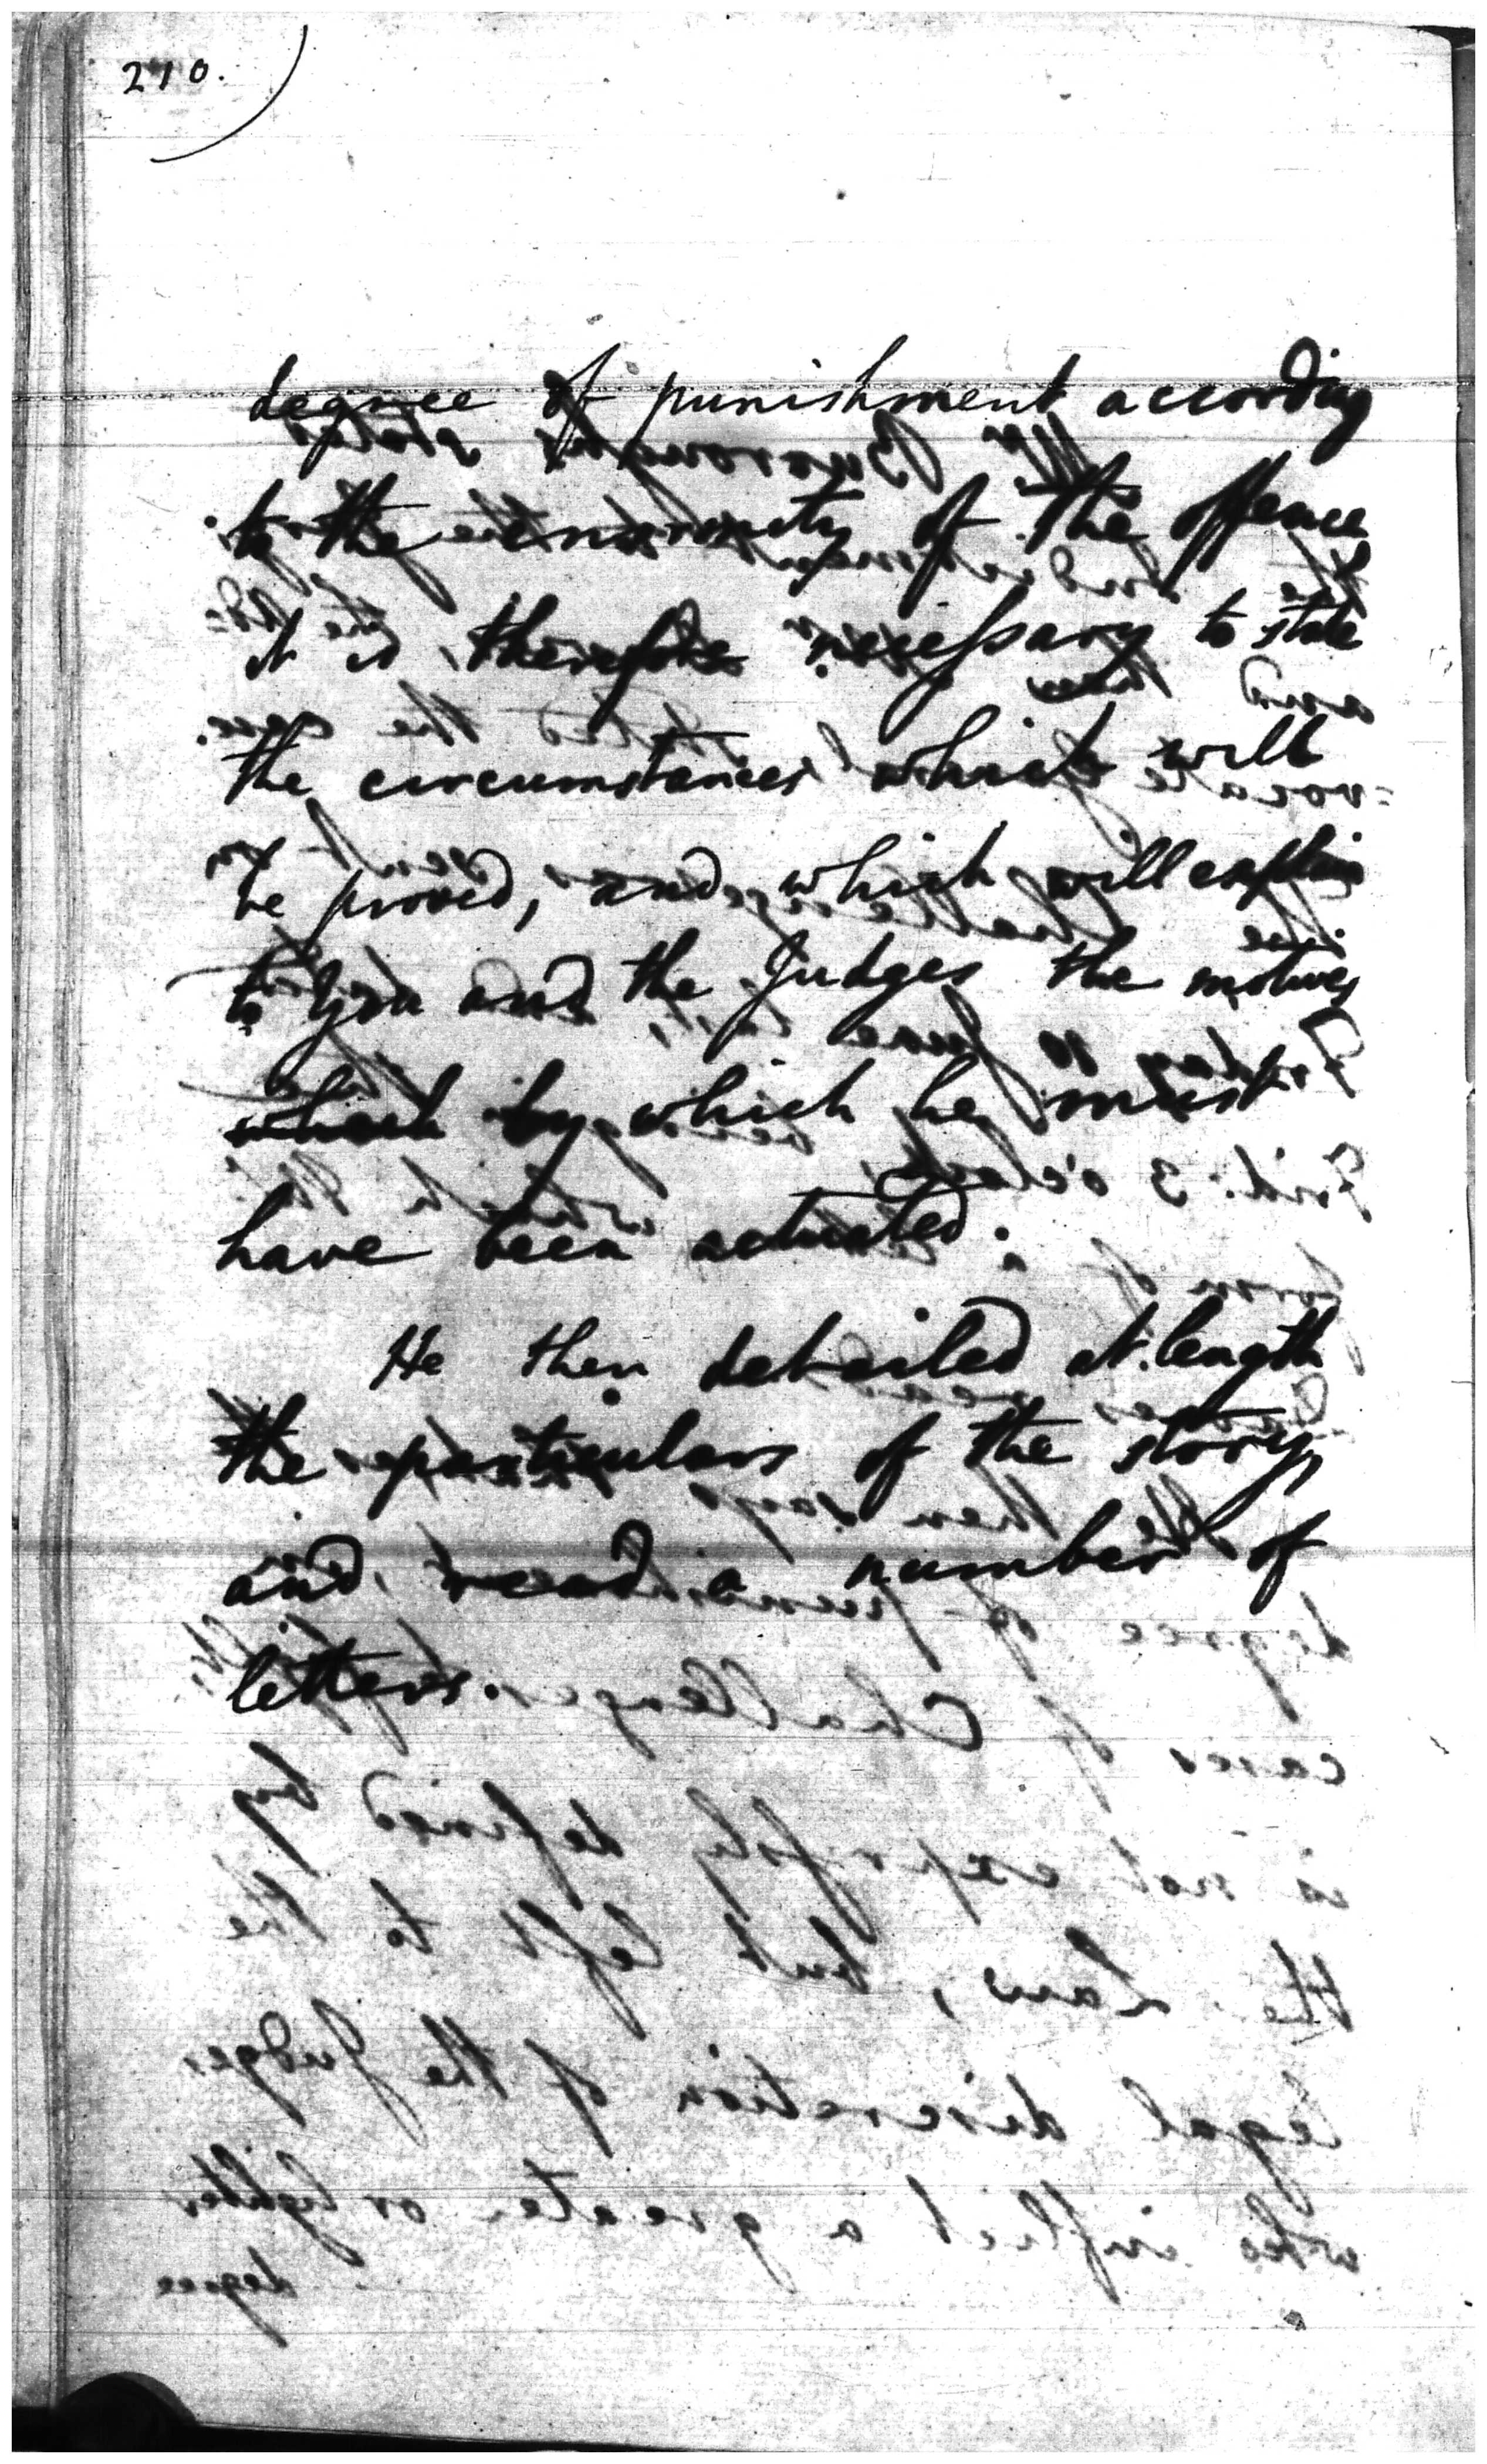 210.
degree of punishment according
to the enormity of the offence
it is, therefore necessary to state
the circumstances which will
be proved, and which will explain
to you and the Judges the motives
which by which he must
have been actuated.
He then detailed at length
the particulars of the story,
and read a number of
letters.